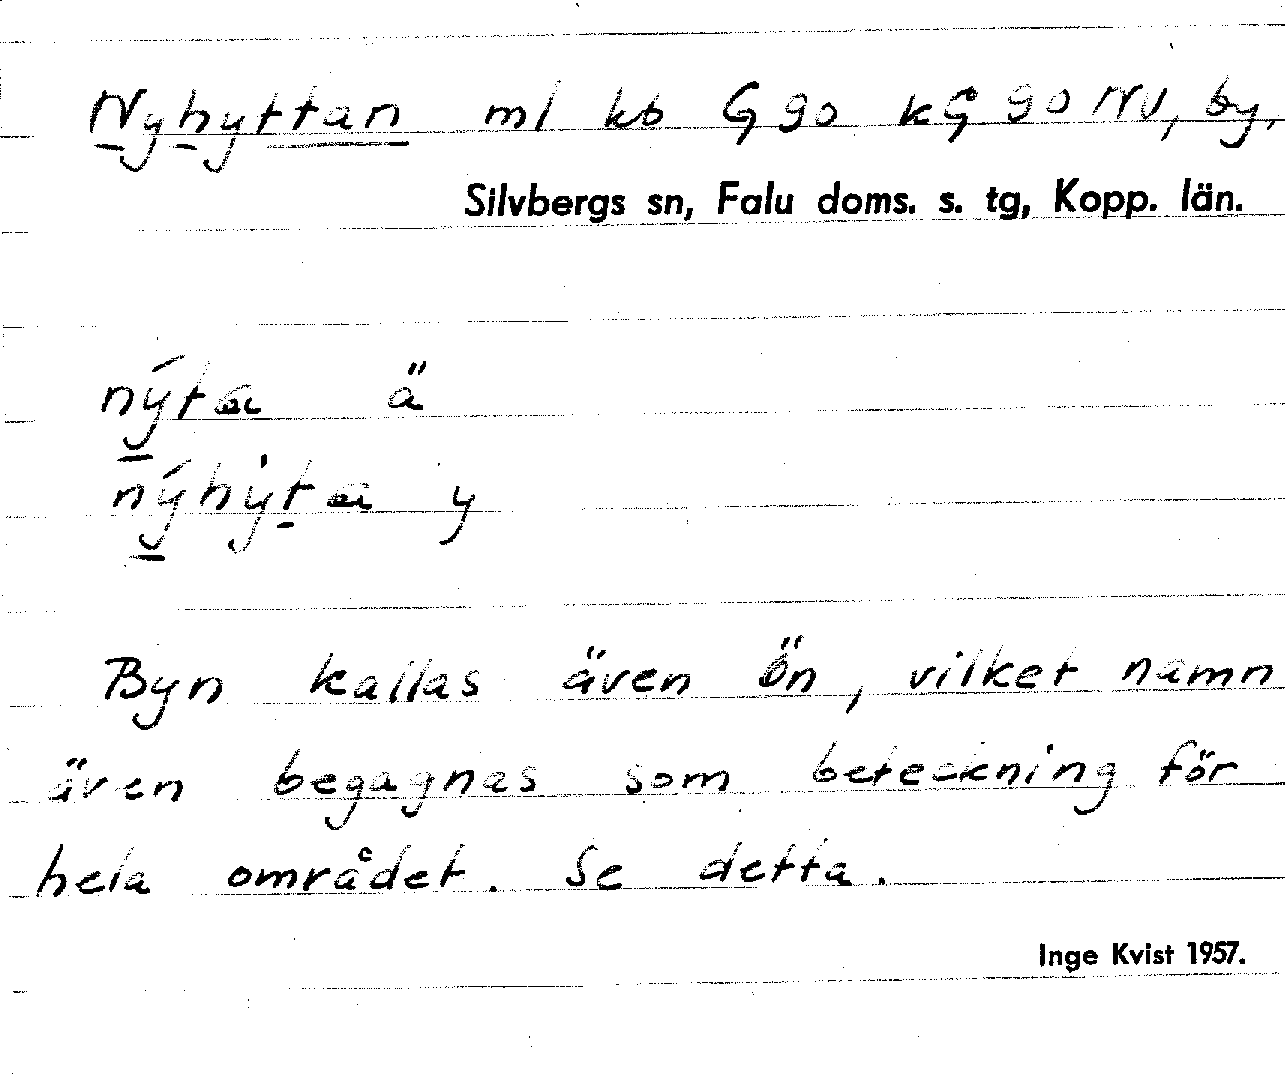 Nyhyttan ml kb G 90 kG 90 NV, by,
Silvbergs sn, Falu doms. s. tg, Kopp. län.
nýta ä
nýhyta y
Byn kallas även Ön, vilket namn
även begagnas som beteckning för
hela området. Se detta.
Inge Kvist 1957.